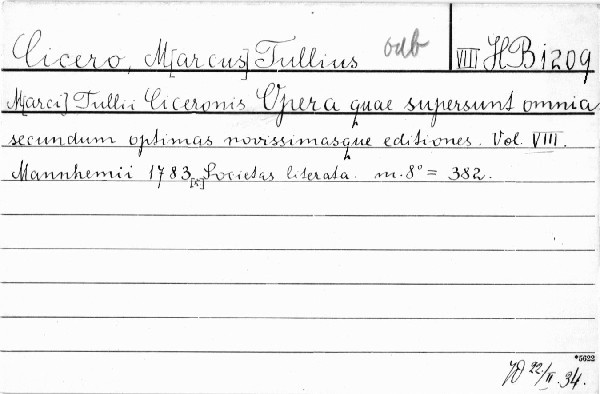 Cicero, M[arcus] Tullius odb VIII HB 1209
M[arci] Tullii Ciceronis Opera quae supersunt omnia
secundum optimas novissimasque editiones. Vol. VIII.
Mannhemii 1783 [s] Societas literata. m. 8° = 382.
*5622
22/II. 34.